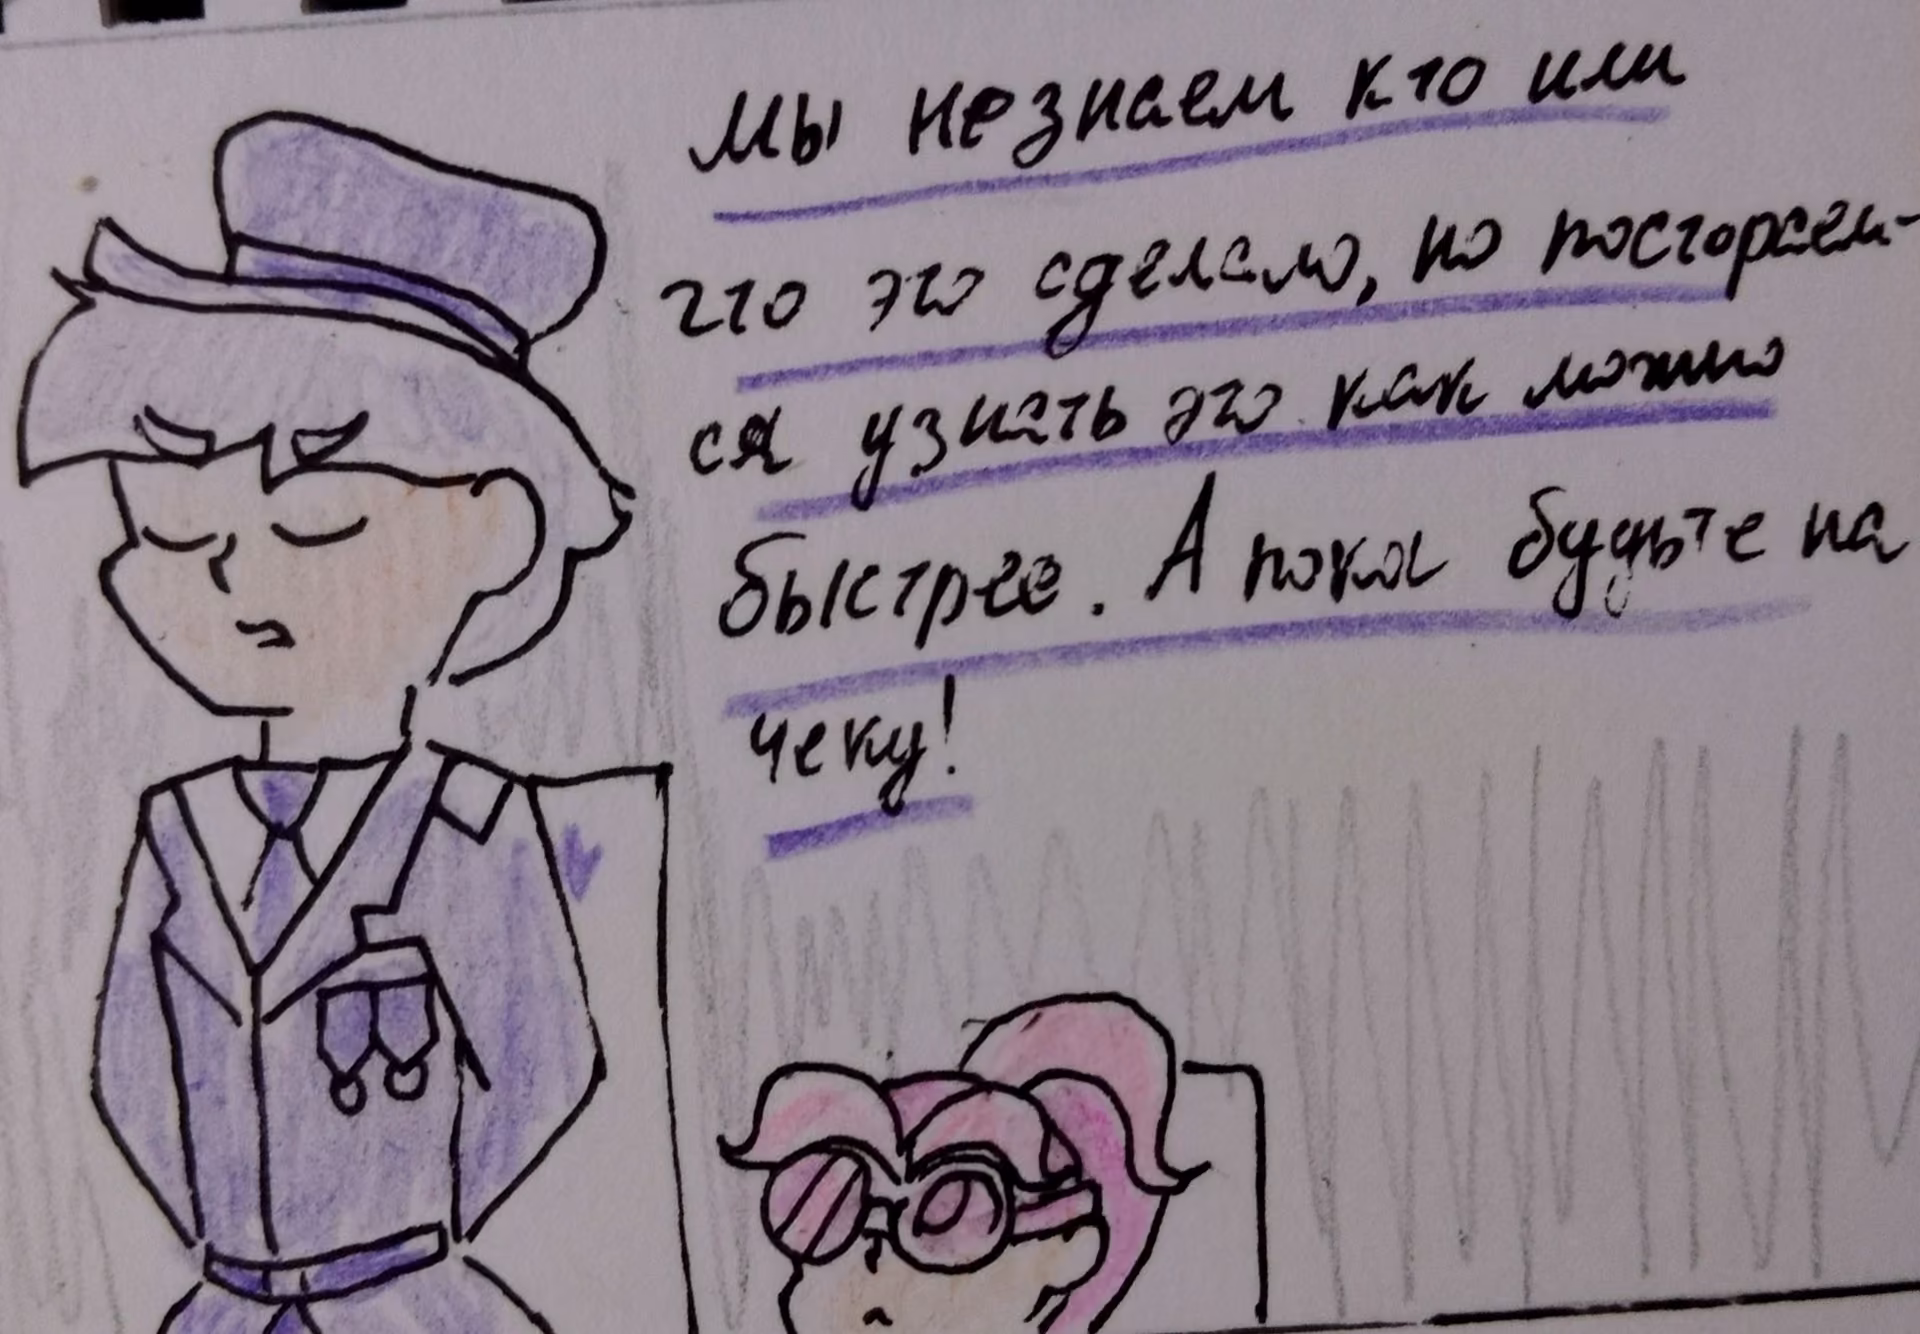 мы незнаем кто или
что это сделало, но постораем-
ся узнать это как можно
быстрее. А пока будьте на
чеку!